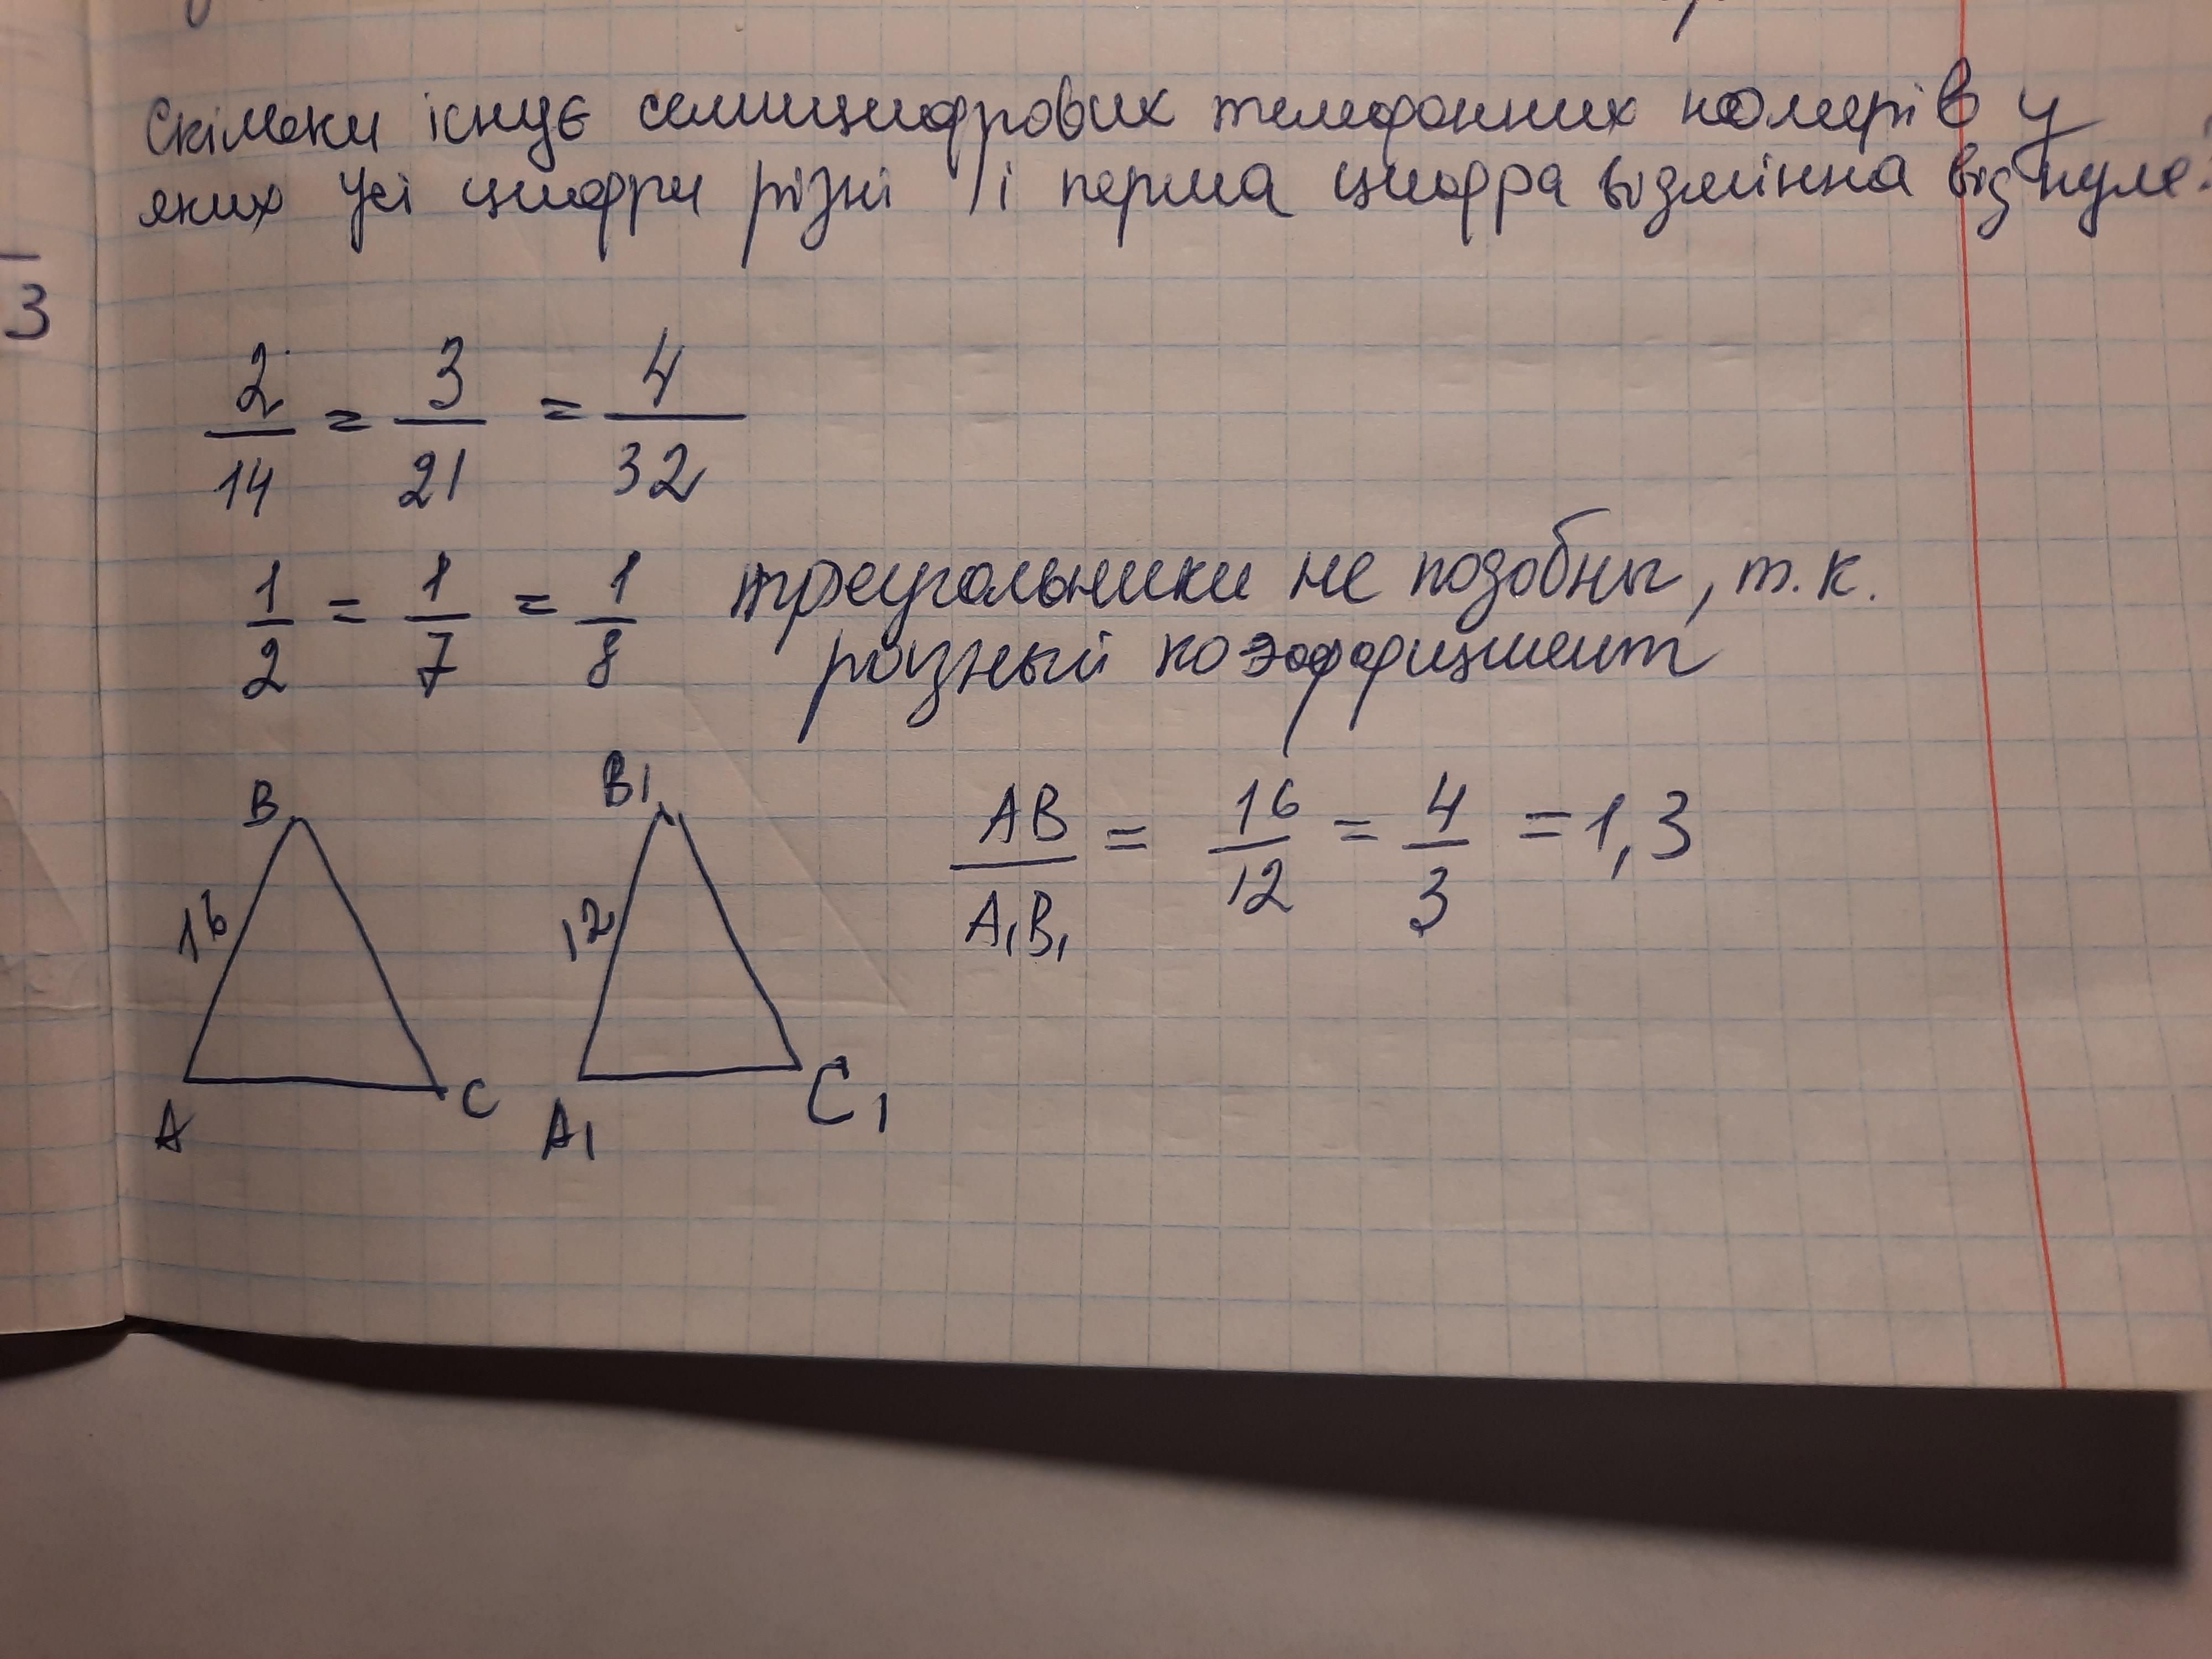 Скільки існує семицифрових телефонних номерів у
яких усі цифри різні і перша цифра відмінна від нуля?
3
2/14 = 3/21 = 4/32
1/2 = 1/7 = 1/8 треугольники не подобны, т.к.
разный коэффициент
B B1
16 12 AB/A₁B₁ = 16/12 = 4/3 = 1,3
A C A1 C1